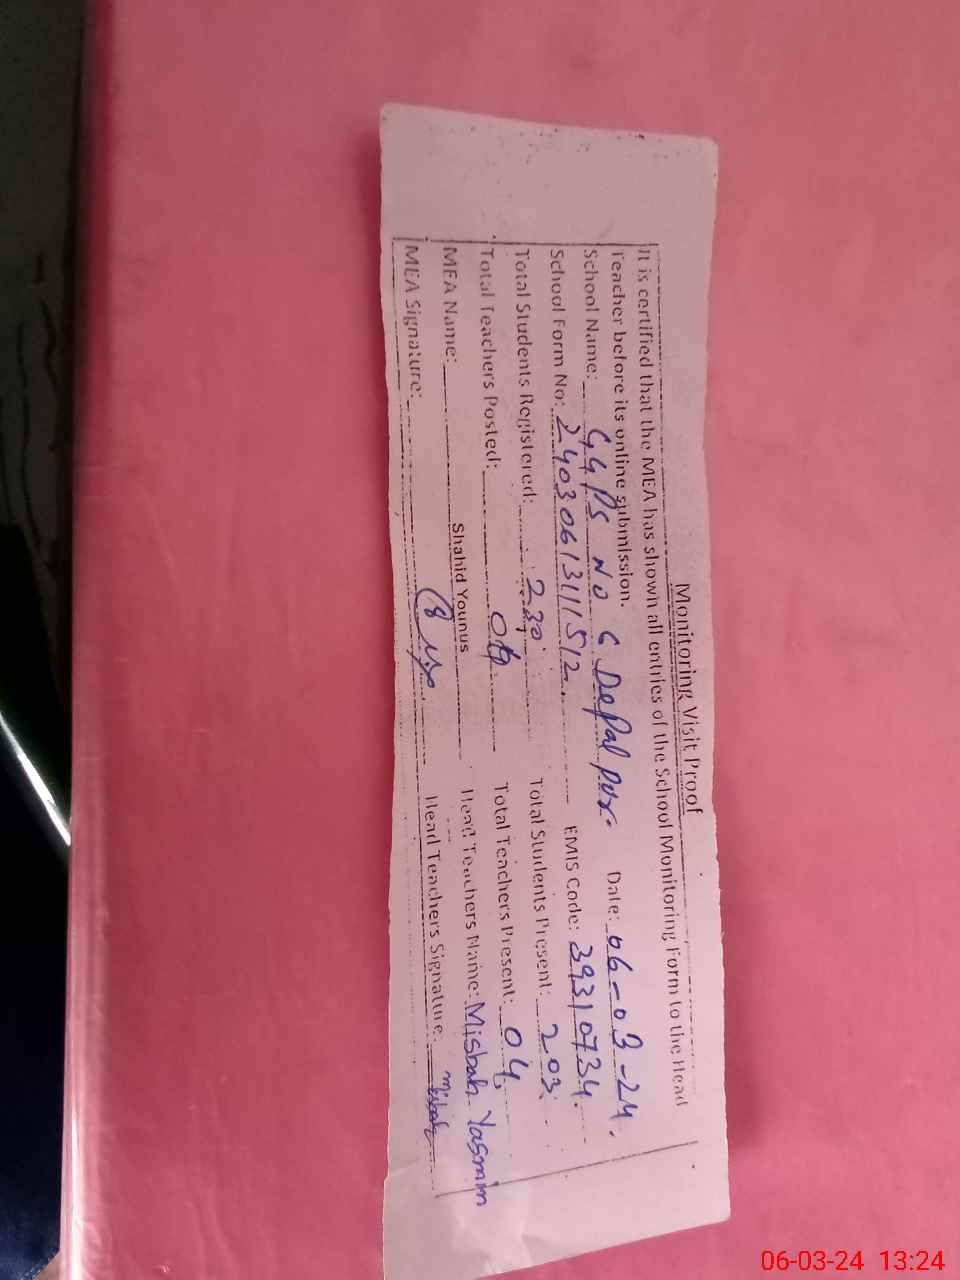 Monitoring Visit Proof
It is certified that the MEA has shown all entries of the School Monitoring Form to the Head
Teacher before its online submission.
School Name: GGPS NO 6 Depal pur. Date: 06-03-24.
School Form No: 2403061311512 EMIS Code: 39310734.
Total Students Registered: 230 Total Students Present: 203
Total Teachers Posted: 04 Total Teachers Present: 04
MEA Name: Shahid Younus Head Teachers Name: Misbah Yasmim
MEA Signature: Head Teachers Signature: Misbah
06-03-24 13:24